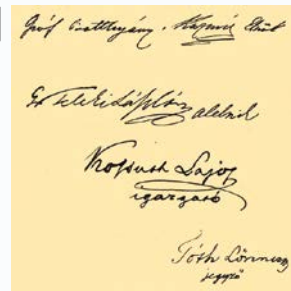 Gróf Batthyány Kázmér Elnök
Gr Teleki László alelnök
Kossuth Lajos
igazgató
Tóth Lőrincz
jegyző